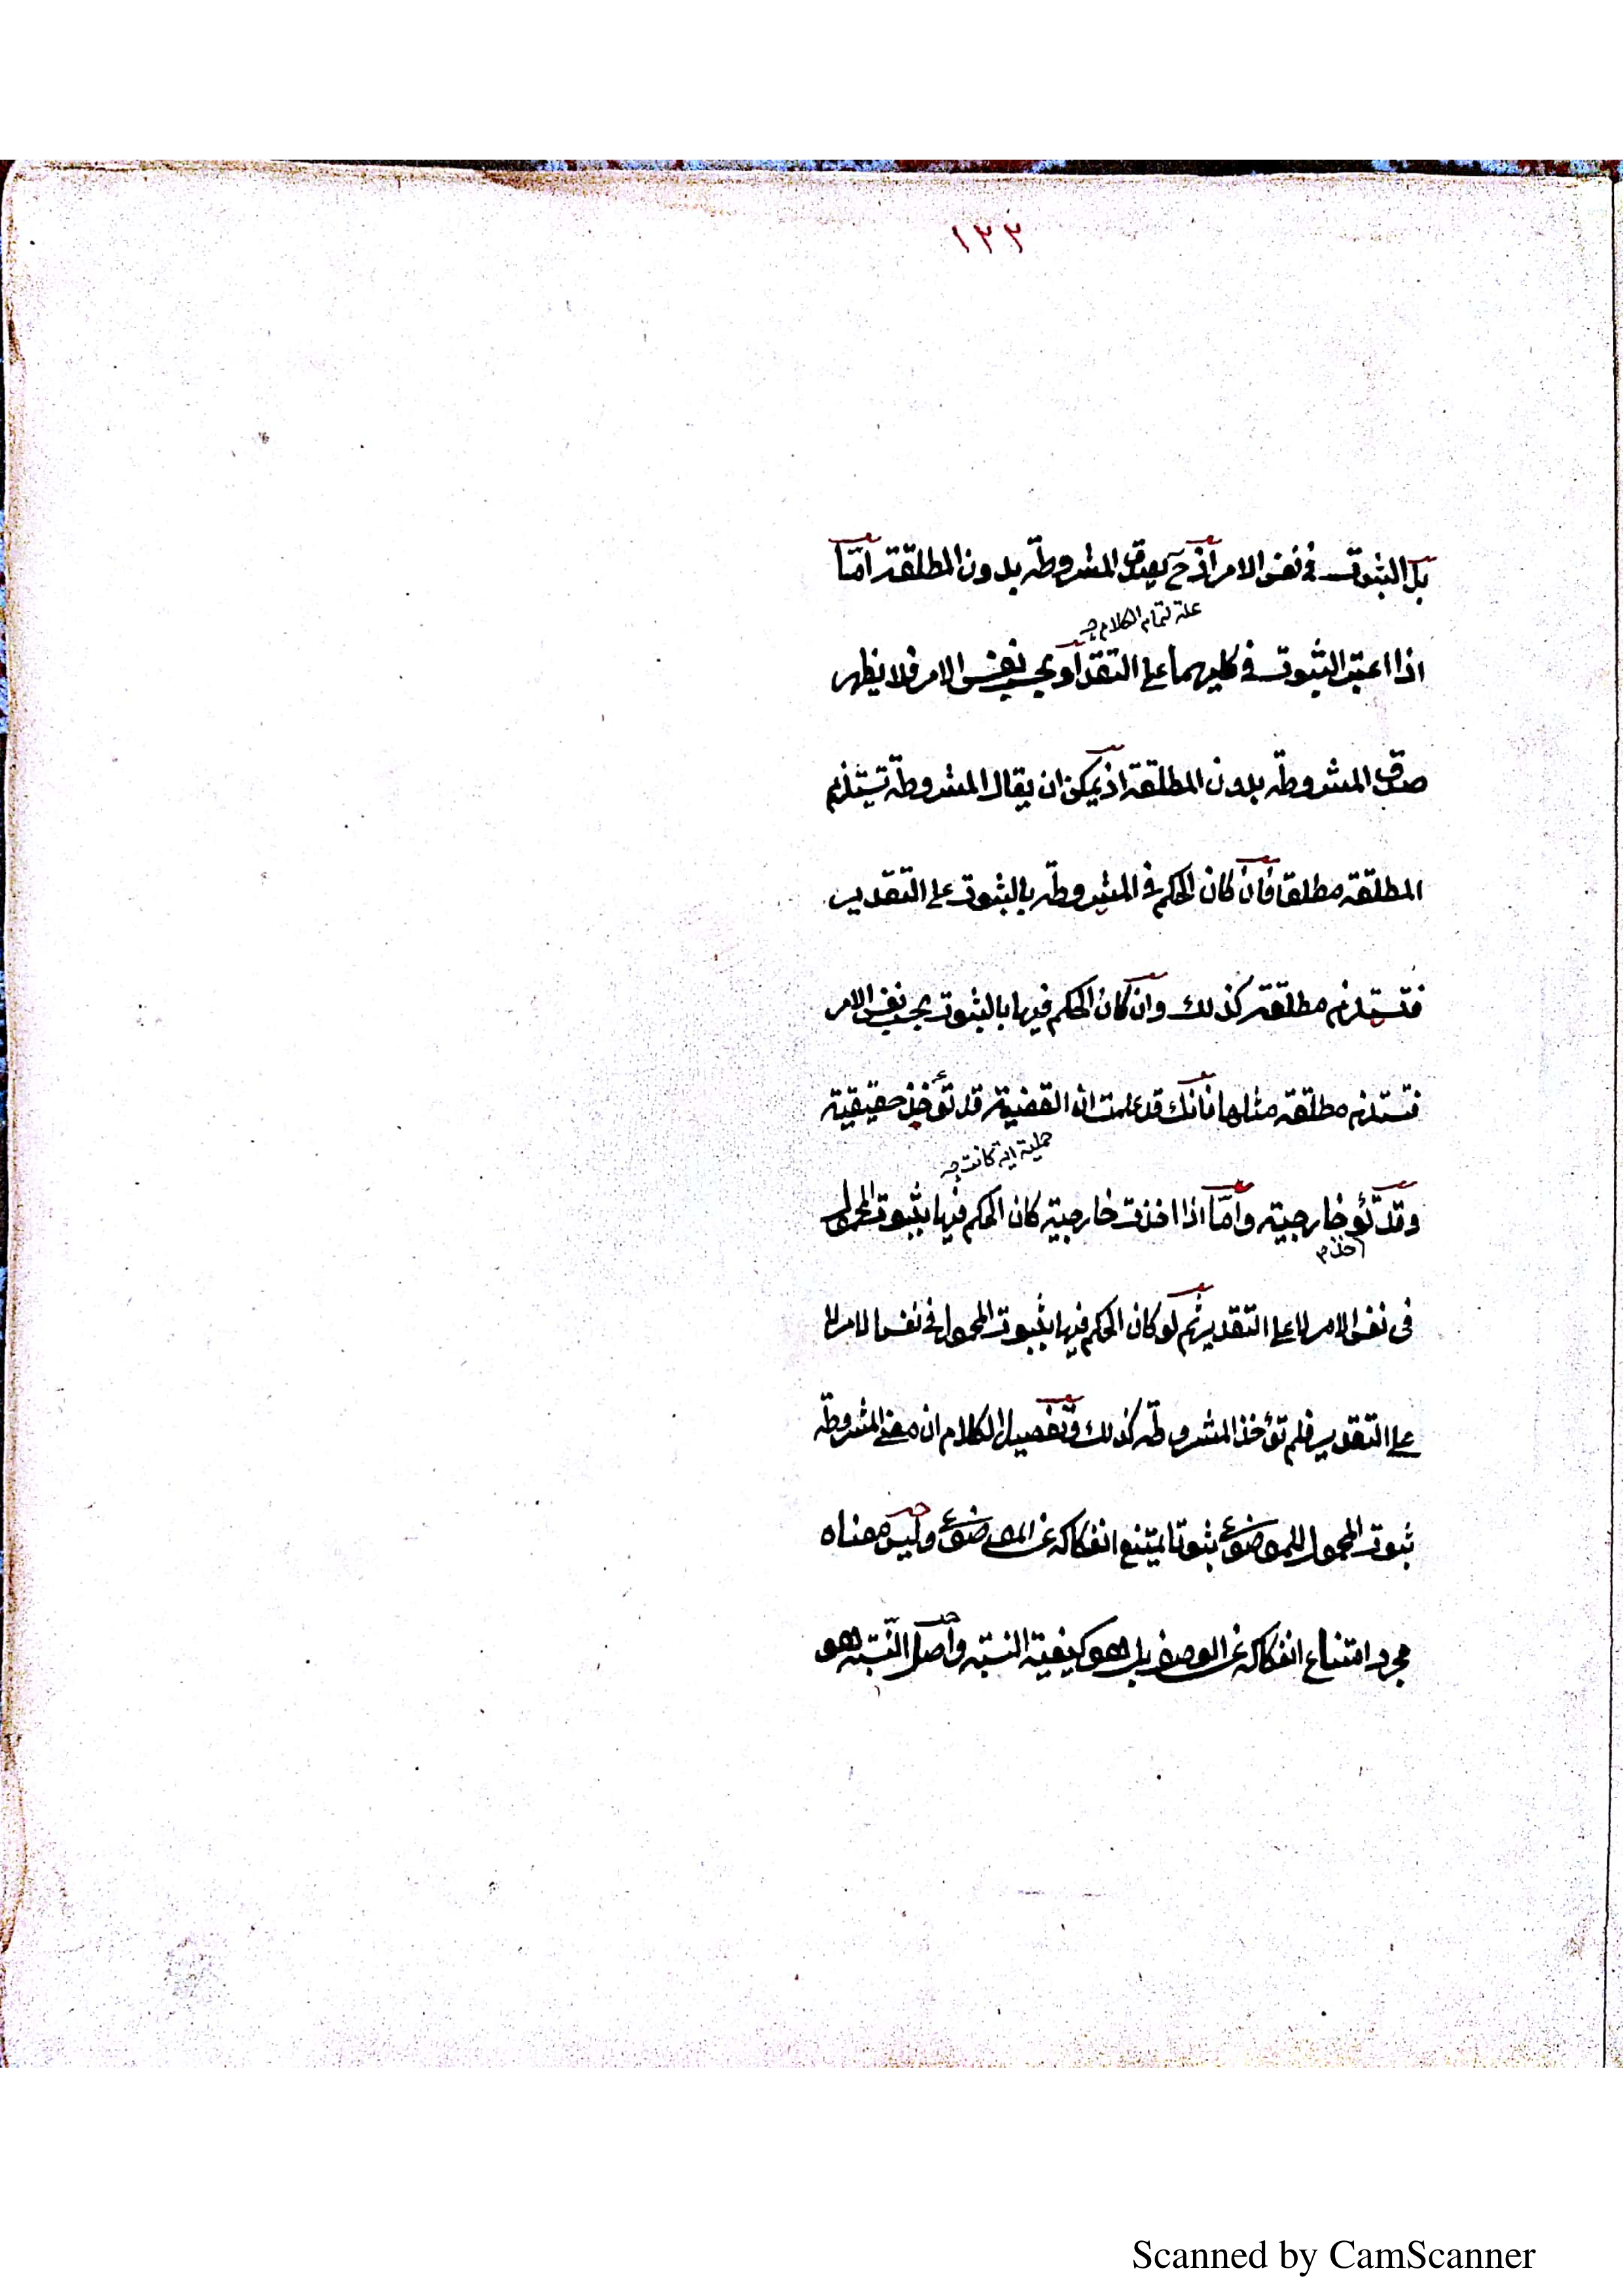 ١٣٣
بل الثبوت في نفس الامر اذ ح يصدق المشروطة بدون المطلقة امّا
علة لتمام الكلام
اذا اعتبر الثبوت في كليهما على التقد او بحسب نفس الامر فلا يظهر
صدق المشروطة بدون المطلقة اذ يمكن ان يقال المشروطة تستلزم
المطلقة مطلقا فان كان الحكم في المشروطة بالثبوت على التقدير
فتستلزم مطلقة كذلك وان كان الحكم فيها بالثبوت بحسب نفس الامر
فتستلزم مطلقة مثلها فانك قد علمت ان القضية قد تؤخذ حقيقية
حملية اية كانت
وقد تؤ خارجية وامّا اذا اخذت خارجية كان الحكم فيها بثبوت المحمول
في نفس الامر لا على التقدير ثم لو كان الحكم فيها بثبوت المحمول في نفس الامر لا
على التقدير فلم تؤخذ المشروطة كذلك وتفصيل الكلام ان معنى المشروطة
ثبوت المحمول للموضوع ثبوتا يمتنع انفكاكه عن الموضوع وليس معناه
مجرد امتناع انفكاكه عن الوصف بل هو كيفية النسبة واصل النسبة هو
Scanned by CamScanner